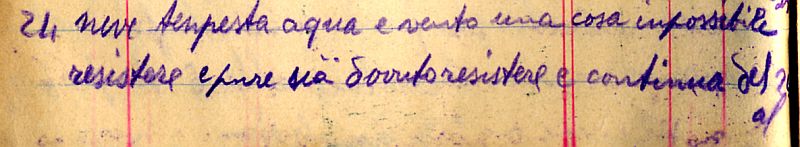 24 neve tenpesta aqua e vento una cosa inpossibile
resistere epure siä dovuto resistere e continua del
al